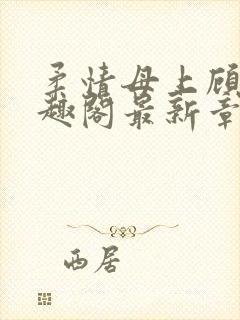 柔情母上顾
趣阁最新章
西居